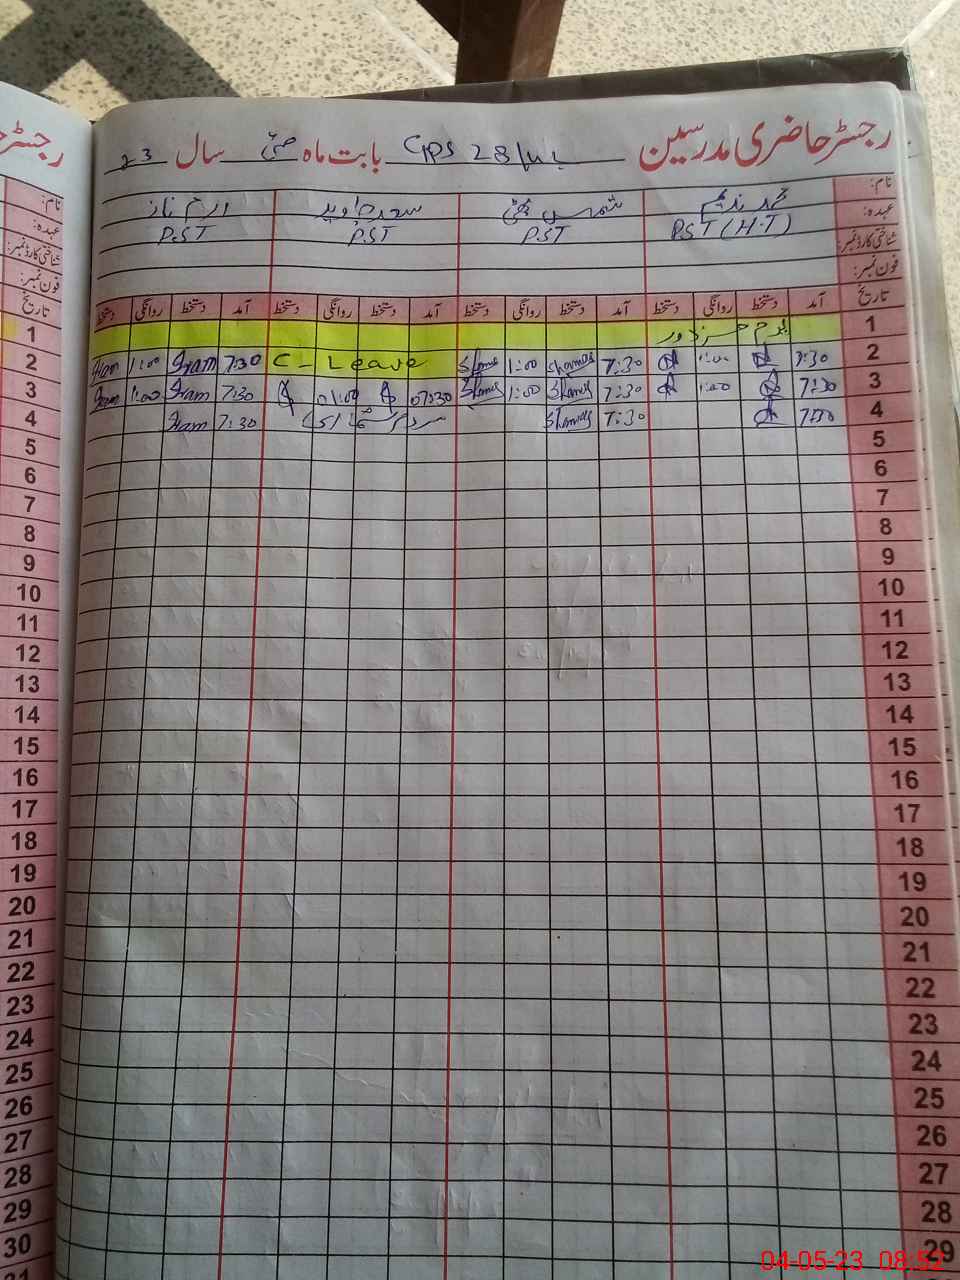 رجسٹر حاضری مدرسین GPS 28/ML بابت ماہ مئی سال 23
نام:
محمد ندیم شمس بھٹی سعدیہ جاوید ارم ناز
عہدہ:
PST (H.T) P.ST P.ST P.ST
شناختی کارڈ نمبر:
فون نمبر:
تاریخ آمد دستخط روانگی دستخط آمد دستخط روانگی دستخط آمد دستخط روانگی دستخط آمد دستخط روانگی دستخط
1 یوم مزدور
2 7:30 1:00 7:30 Shams 1:00 Shams C - Leave 7:30 Iram 1:00 Iram
3 7:30 1:00 7:30 Shams 1:00 Shams 07:30 01:00 7:30 Iram 1:00 Iram
4 7:30 7:30 Shams 7:30 Iram
5
6
7
8
9
10
11
12
13
14
15
16
17
18
19
20
21
22
23
24
25
26
27
28
29
رجسٹر
نام:
عہدہ:
شناختی کارڈ نمبر:
فون نمبر:
تاریخ
1
2
3
4
5
6
7
8
9
10
11
12
13
14
15
16
17
18
19
20
21
22
23
24
25
26
27
28
29
30
31
04-05-23 08:52